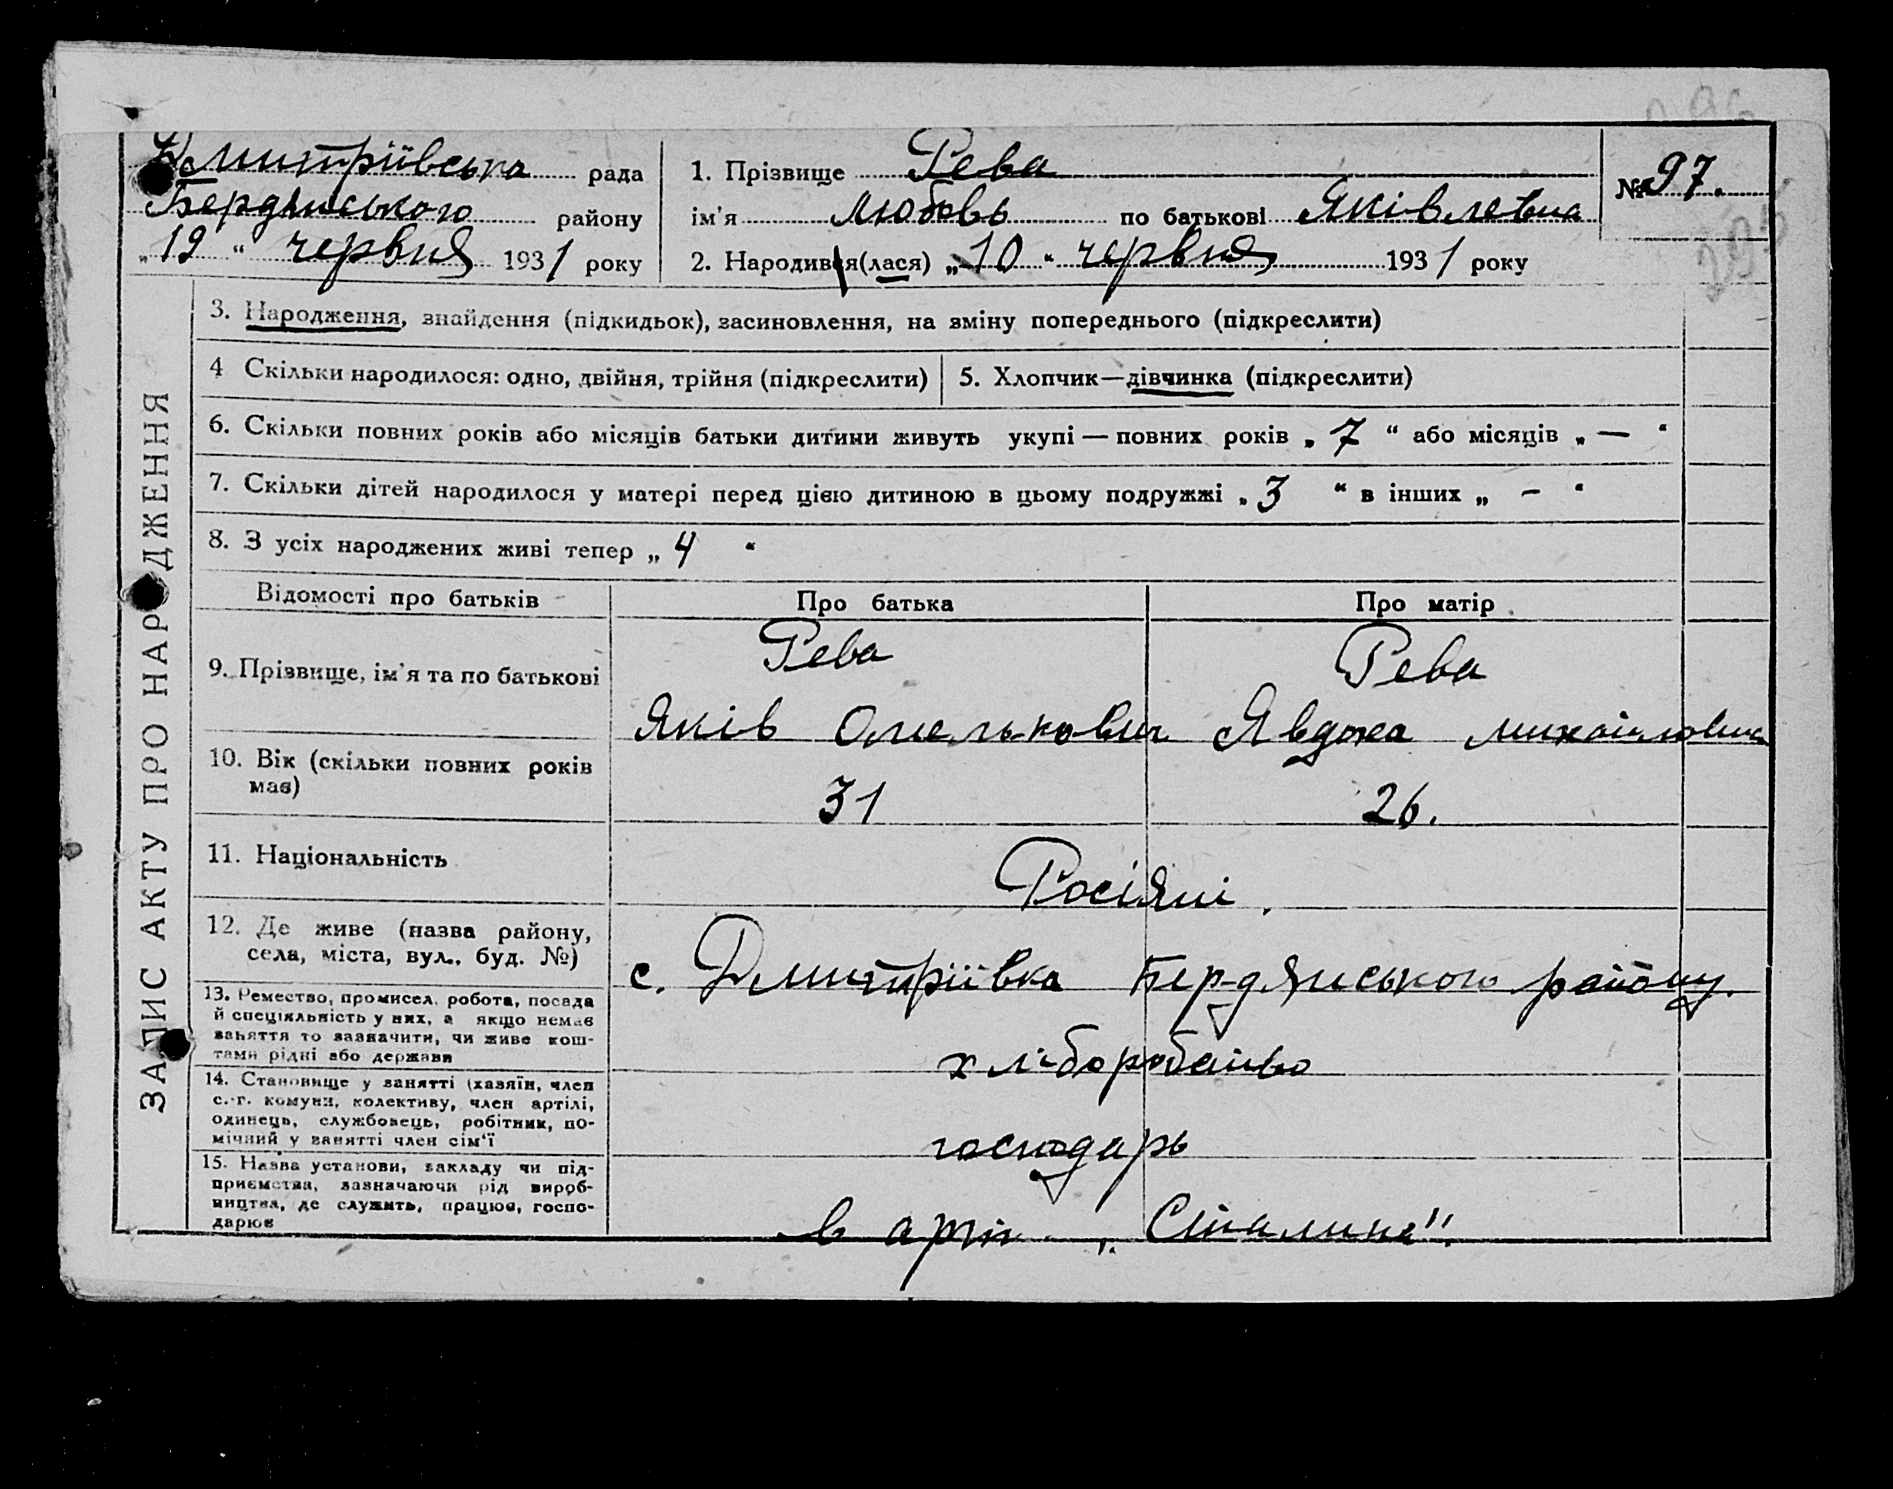 Дмитріївська рада
Бердянського району
„19“ червня 1931 року
1. Прізвище Рева
ім'я Любовь по батькові Яківлевна
2. Народився(лася) „10“ червня 1931 року
№ 97.
ЗАПИС АКТУ ПРО НАРОДЖЕННЯ
3. Народження, знайдення (підкидьок), засиновлення, на зміну попереднього (підкреслити)
4 Скільки народилося: одно, двійня, трійня (підкреслити)
5. Хлопчик—дівчинка (підкреслити)
6. Скільки повних років або місяців батьки дитини живуть укупі — повних років „7“ або місяців „—“
7. Скільки дітей народилося у матері перед цією дитиною в цьому подружжі „3“ в інших „-“
8. З усіх народжених живі тепер „4“
Відомості про батьків Про батька Про матір
9. Прізвище, ім'я та по батькові
Рева Рева
Яків Омелькович Явдоха Михайловна
10. Вік (скільки повних років
має)
31 26.
11. Національність
Росіяни.
12. Де живе (назва району,
села, міста, вул., буд. №)
с. Дмитріївка Бердянського району.
13. Ремество, промисел, робота, посада
й спеціяльність у них, а якщо немає
заняття то зазначити, чи живе кош-
тами рідні або держави
хліборобство
14. Становище у занятті (хазяїн, член
с.-г. комуни, колективу, член артілі,
одинець, службовець, робітник, по-
мічний у занятті член сім'ї
господарь
15. Назва установи, закладу чи під-
приємства, зазначаючи рід вироб-
ництва, де служить, працює, госпо-
дарює
в арт. „Сталина".